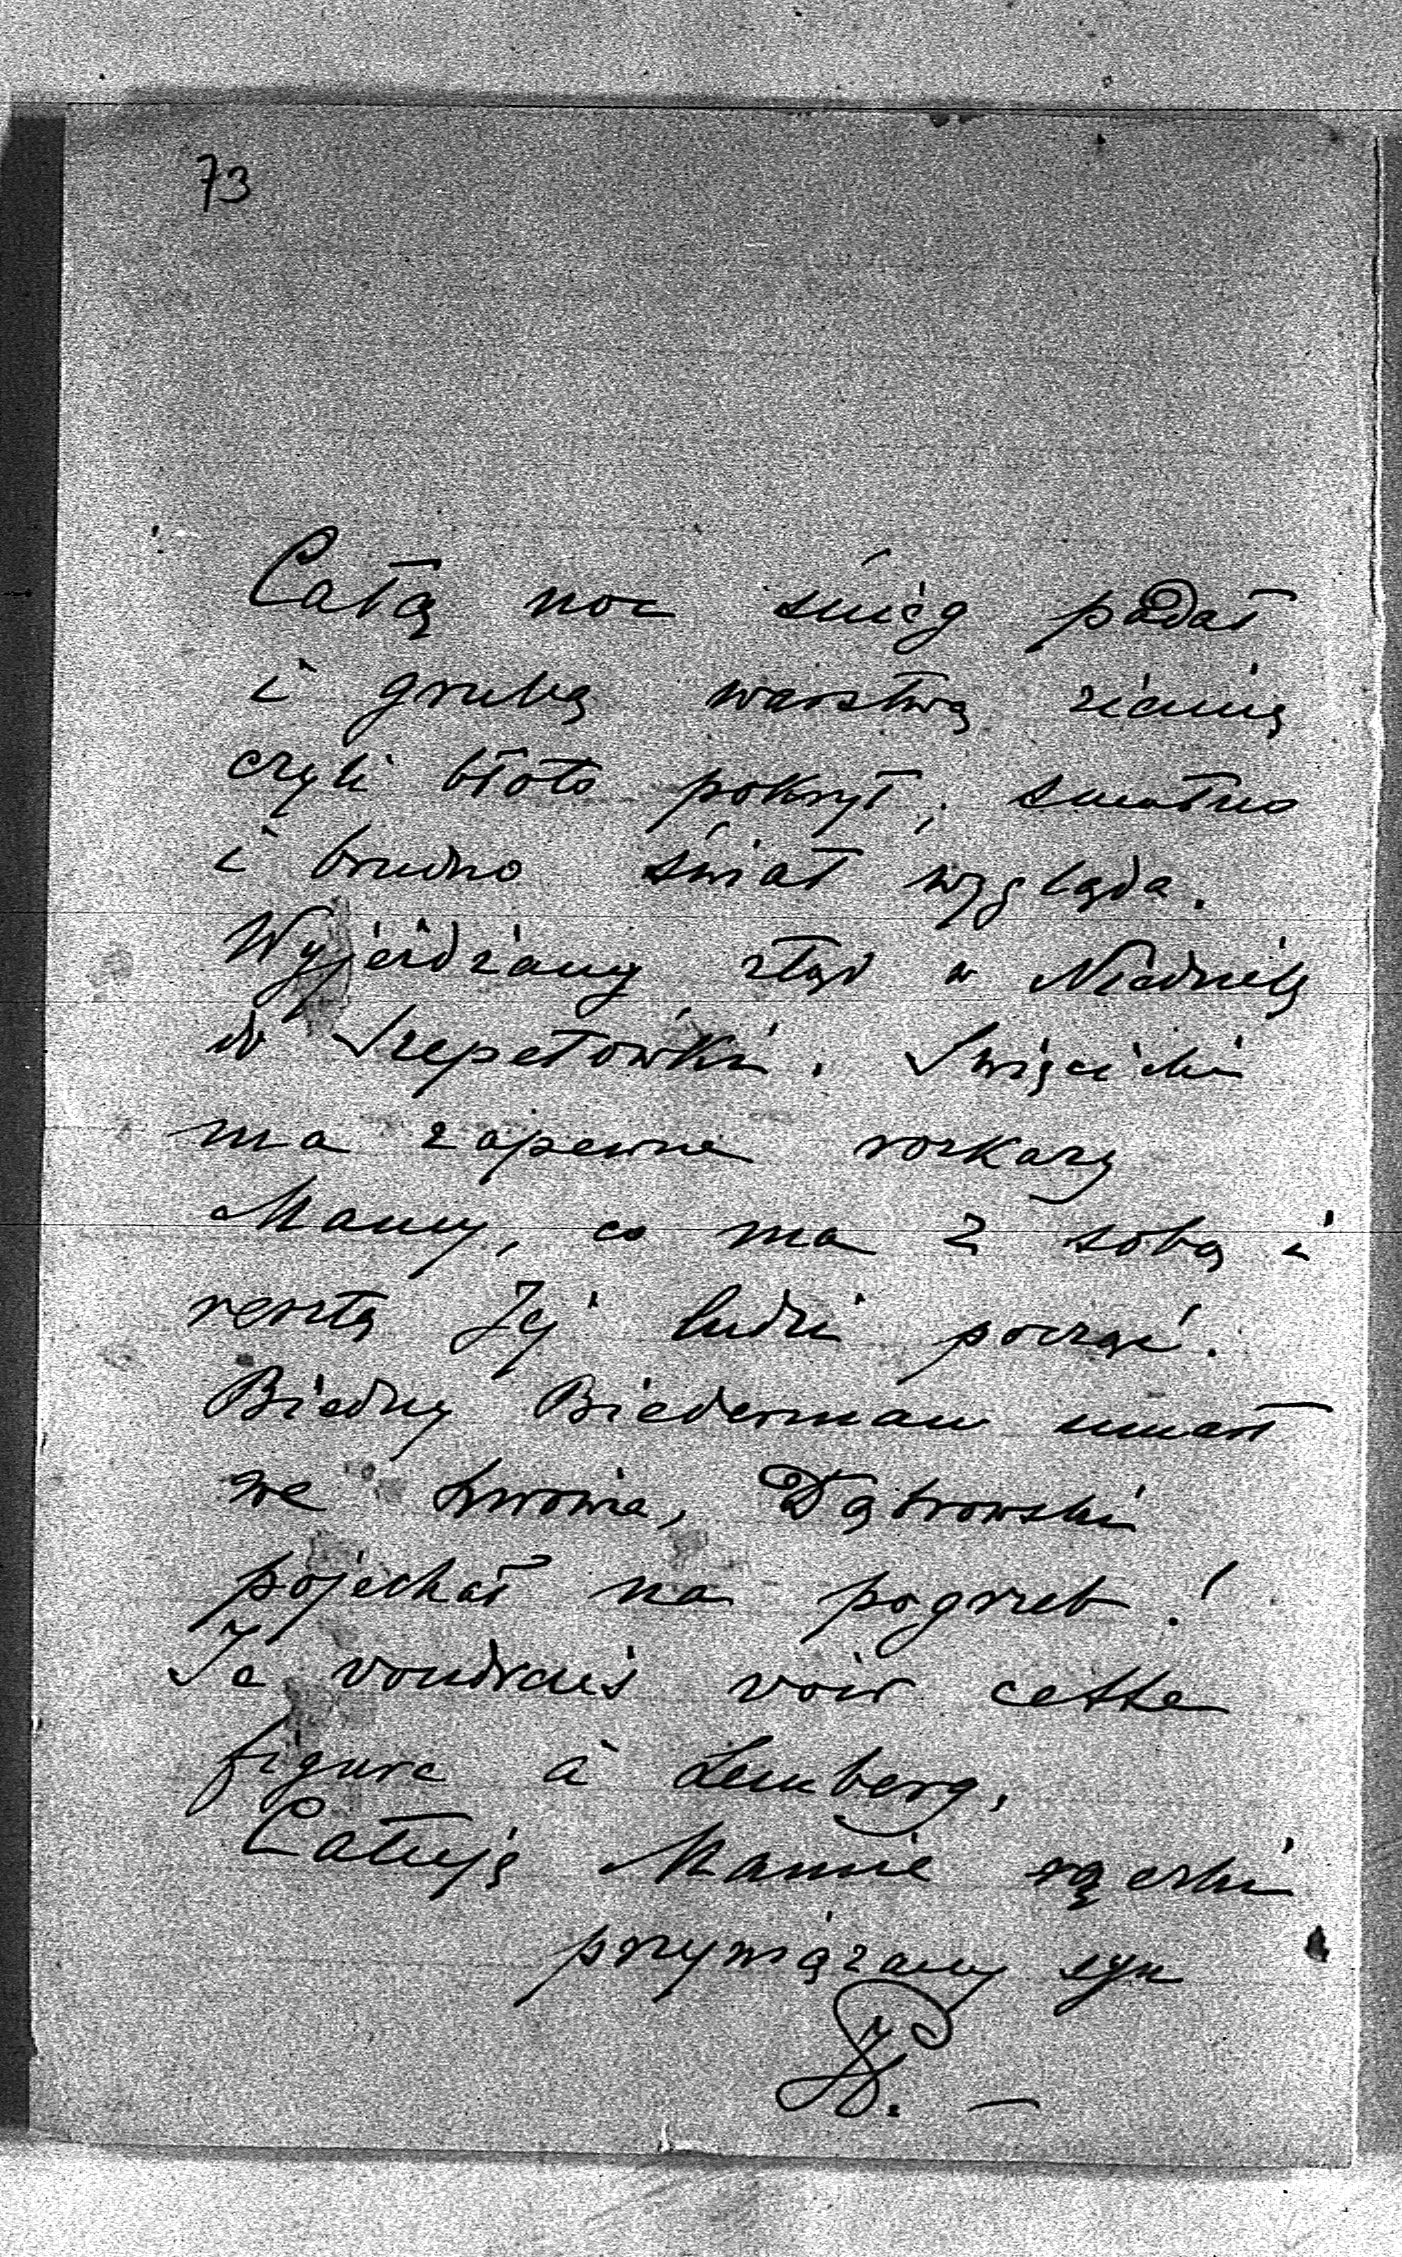 73
Całą noc śnieg padał
i grubą warstwą ziemię
czyli błoto pokrył, smutno
i brudno świat wygląda.
Wyjeżdżamy ztąd w Niedzielę
do Szepetówki. Święcicki
ma zapewne rozkazy
Mamy, co ma z sobą i
resztą Jej ludzi począć.
Biedny Biederman umarł
we Lwowie, Dąbrowski
pojechał na pogrzeb!
Je voudrais voir cette
figure à Lemberg.
Całuję Mamie rączki
przywiązany syn